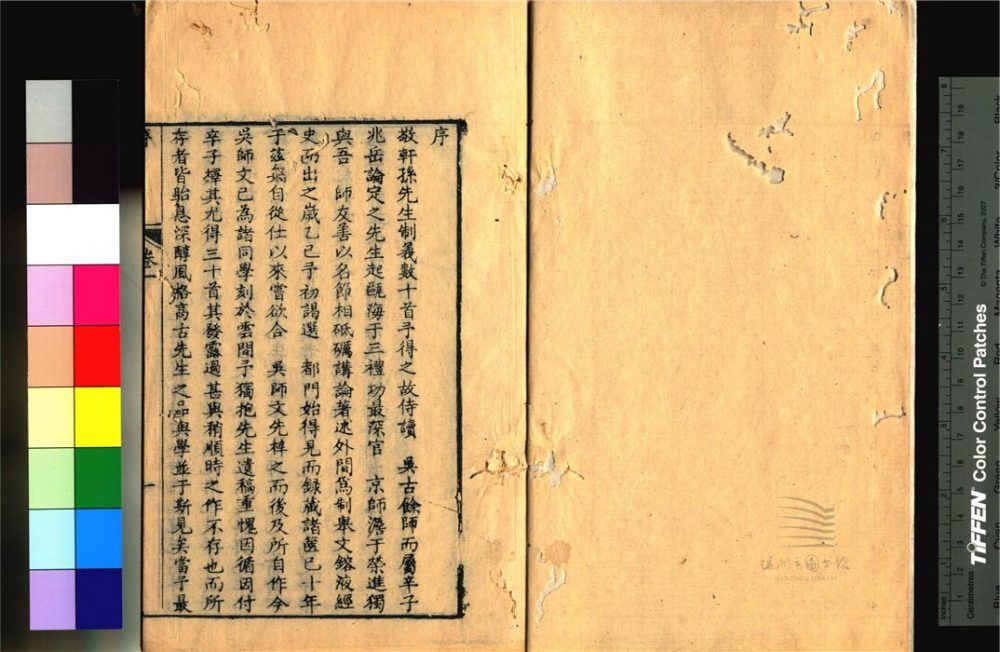 序
敬軒孫先生制義數十首予得之故侍讀 吳古餘師而屬辛子
兆岳論定之先生起甌海于三禮功最深官 京師澹于榮進獨
與吾 師友善以名節相砥礪講論著述外間為制舉文鎔液經
史而出之歲乙巳予初謁選 都門始得見而錄藏諸篋已十年
于茲矣自從仕以來嘗欲合 吳師文先梓之而後及所自作今
吳師文已為諸同學刻於雲間予獨抱先生遺稿重愧因循因付
辛子擇其尤得三十首其發露過甚與稍順時之作不存也而所
存者皆貽息深醇風格高古先生之品與學並于斯見矣當予最
序
卷一
一
溫州市圖書館
WENZHOU LIBRARY
Inches
Centimetres
TIFFEN Color Control Patches
© The Tiffen Company, 2007